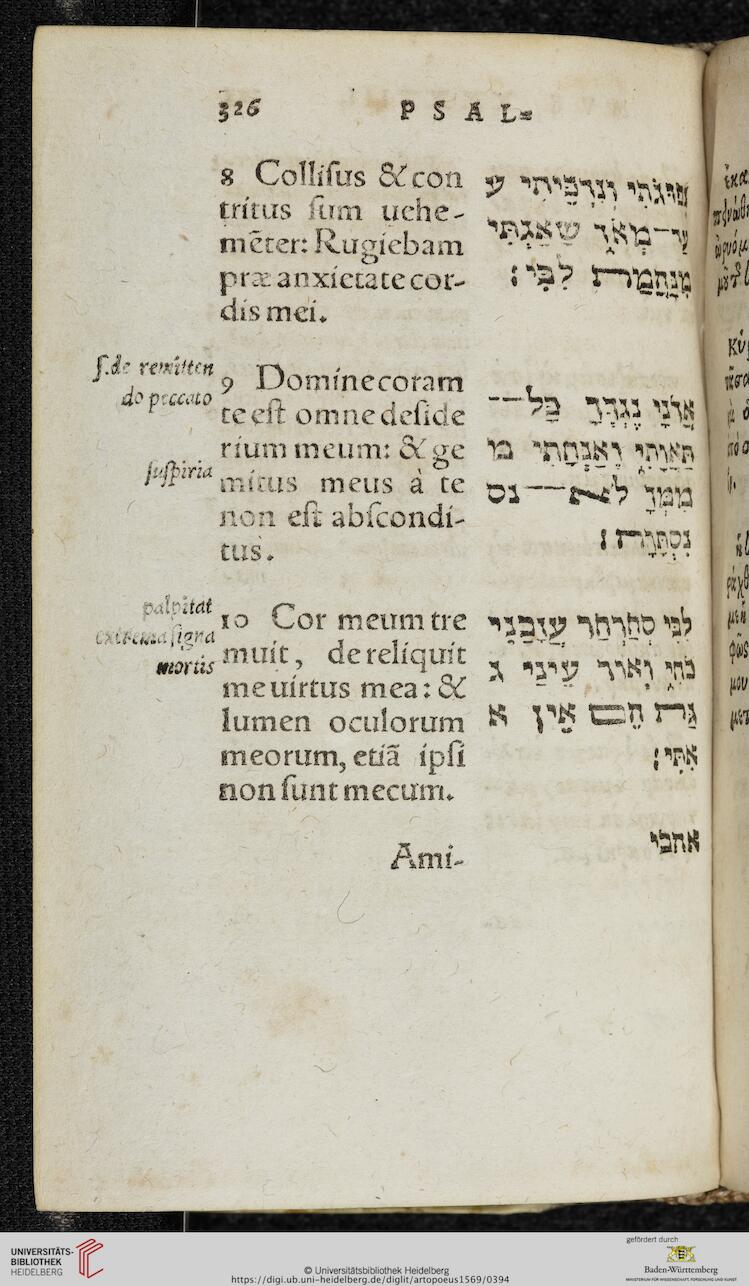 326 PSAL-
8 Colliſus & con
tritus ſum uehe-
mẽter: Rugiebam
præ anxietate cor-
dis mei.
נְפוּגֹתִי וְנִדְכֵּיתִי ע
עַד־מְאֹד שָׁאַגְתִּי
מִנַּהֲמַת לִבִּי׃
ſ. de remitten
do peccato
9 Domine coram
te eſt omne deſide
rium meum: & ge
mitus meus à te
non eſt abſcondi-
tus.
ſuſpiria
אֲדֹנָי נֶגְדְּךָ כָל־
תַּאֲוָתִי וְאַנְחָתִי מִ
מִמְּךָ לֹא־נס
נִסְתָּרָה׃
palpitat
extrema ſigna
mortis
10 Cor meum tre
muit, dereliquit
me uirtus mea: &
lumen oculorum
meorum, etiã ipſi
non ſunt mecum.
לִבִּי סְחַרְחַר עֲזָבַנִי
כֹחִי וְאוֹר עֵינַי ג
גַּם הֵם אֵין א
אִתִּי׃
Ami-
אהבי
UNIVERSITÄTS-
BIBLIOTHEK
HEIDELBERG
© Universitätsbibliothek Heidelberg
https://digi.ub.uni-heidelberg.de/diglit/artopoeus1569/0394
gefördert durch
Baden-Württemberg
MINISTERIUM FÜR WISSENSCHAFT, FORSCHUNG UND KUNST